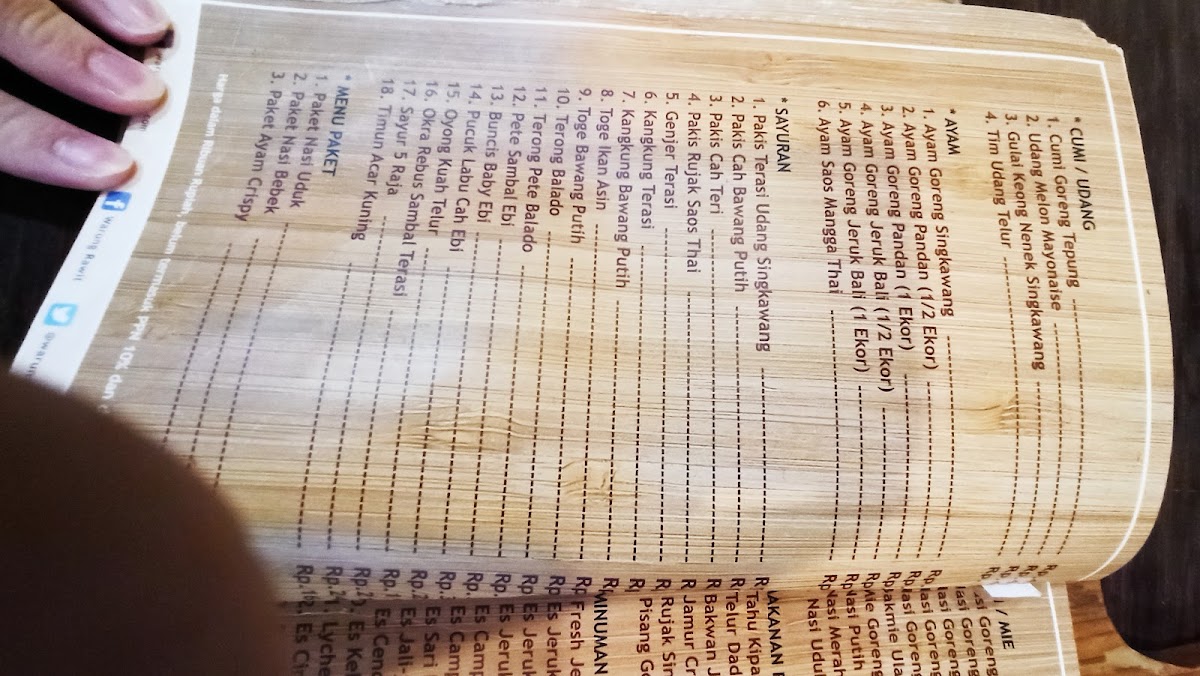 * CUMI / UDANG
1. Cumi Goreng Tepung
2. Udang Melon Mayonaise
3. Gulai Keong Nenek Singkawang
4. Tim Udang Telur
* AYAM
1. Ayam Goreng Singkawang
2. Ayam Goreng Pandan (1/2 Ekor)
3. Ayam Goreng Pandan (1 Ekor)
4. Ayam Goreng Jeruk Bali (1/2 Ekor)
5. Ayam Goreng Jeruk Bali (1 Ekor)
6. Ayam Saos Mangga Thai
* SAYURAN
1. Pakis Terasi Udang Singkawang
2. Pakis Cah Bawang Putih
3. Pakis Cah Teri
4. Pakis Rujak Saos Thai
5. Genjer Terasi
6. Kangkung Terasi
7. Kangkung Bawang Putih
8. Toge Ikan Asin
9. Toge Bawang Putih
10. Terong Balado
11. Terong Pete Balado
12. Pete Sambal Ebi
13. Buncis Baby Ebi
14. Pucuk Labu Cah Ebi
15. Oyong Kuah Telur
16. Okra Rebus Sambal Terasi
17. Sayur 5 Raja
18. Timun Acar Kuning
* MENU PAKET
1. Paket Nasi Uduk
2. Paket Nasi Bebek
3. Paket Ayam Crispy
Harga dalam Ribuan Rupiah, belum termasuk PPN 10% dan
Warung Rawit
/ MIE
Goreng
Nasi Goreng
Nasi Goreng
Nasi Goreng
Mie Goreng
Nasi Putih
Nasi Merah
Tahu Kipa
Telur Dad
Bakwan J
Jamur Cr
Rujak Sin
Pisang Go
MINUMAN
Fresh Je
Es Jeruk
Es Jeruk
Es Jeruk
Es Camp
Es Camp
Es Sari
Es Jali-